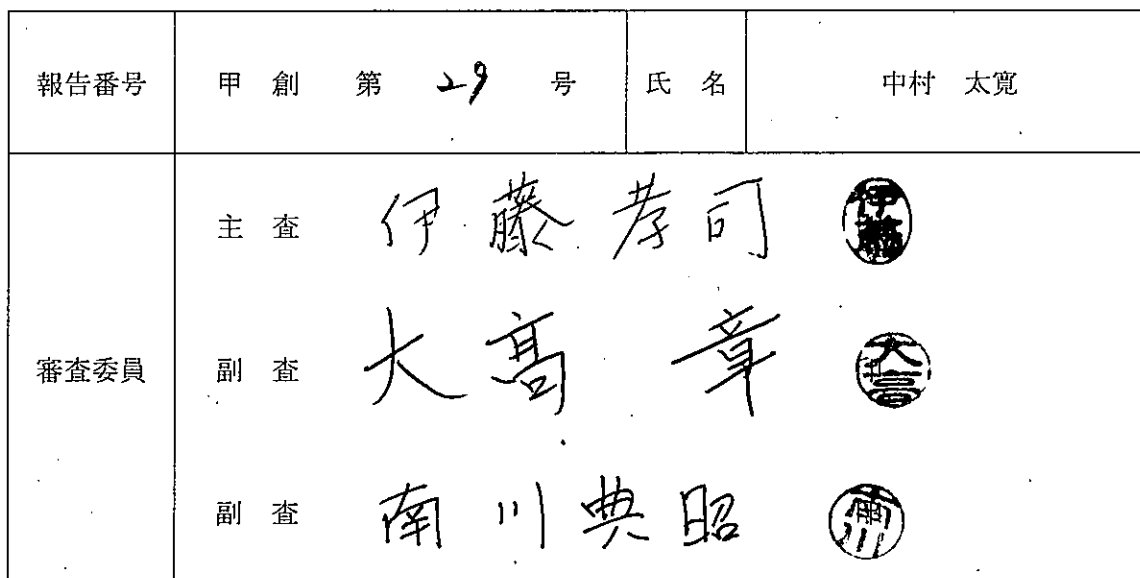 報告番号 甲 創 第 29 号 氏 名 中村 太寛
主 査 伊藤孝司 伊藤
審査委員 副 査 大髙 章 大髙
副 査 南川典昭 南川